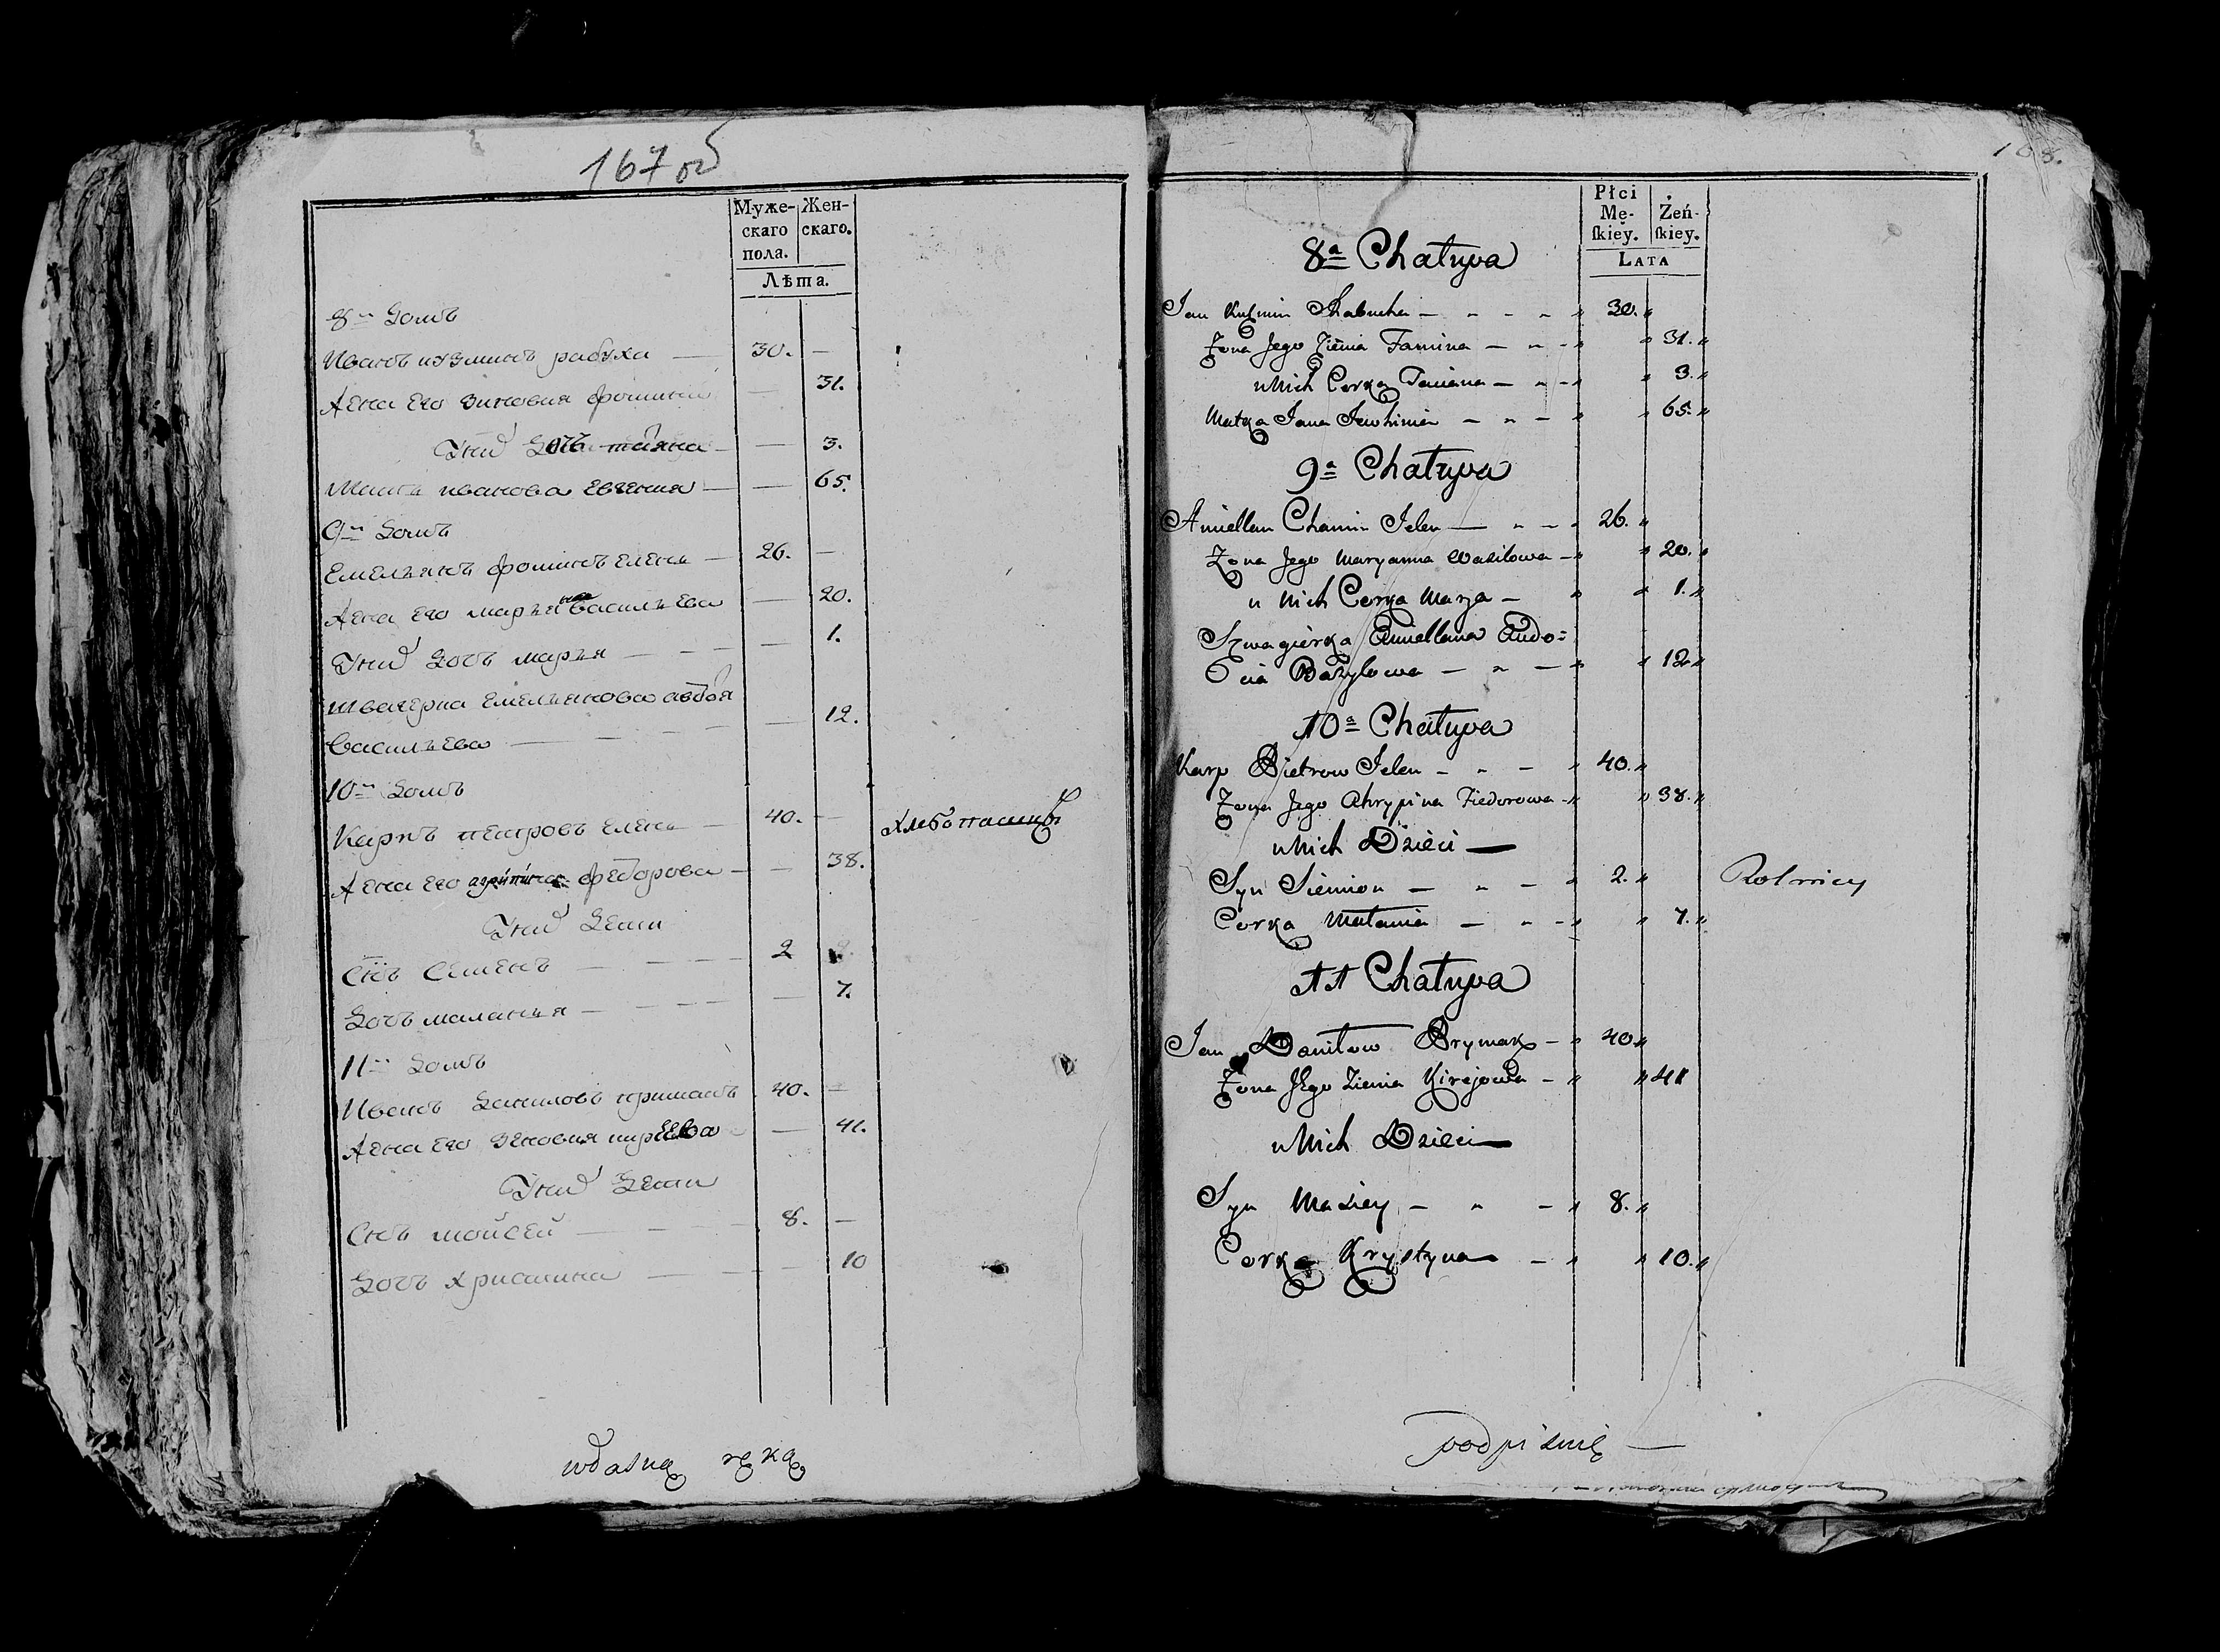 167 об
Муже-
скаго
пола.
Жен-
скаго.
Лѣта.
8й Домъ
Иванъ кузминъ рабуха — 30. —
Жена Его зиновия фомина — 31.
Унихъ Дочь татяна — — 3.
Мать иванова Евгения — — 65.
9й Домъ
Емельянъ фоминъ Елень — 26. —
Жена Его марьяна васильева — 20.
Унихъ Дочь марья — — — 1.
швагерка Емельянова авдотя
васильева — — — — 12.
10й Домъ
Карпъ петровъ Елень — 40. — хлебопашцы
Жена Его агрипина федорова — — 38.
Унихъ Дети
Сынъ Семенъ — — — 2
Дочь маланья — — — — 7.
11й Домъ
Иванъ Даниловъ примакъ 40. —
Жена Его Зеновия кирЕЕва — 41.
Унихъ Дети
Сынъ мойсей — — — 8. —
Дочь христина — — — 10
własną ręką
168.
Płci
Mę-
ſkiey.
Żeń-
ſkiey.
LATA
8a Chatupa
Jan Kuzmin Rabucha — 30.
Żona Jego Zienia Famina — 31.
u Nich Corka Taciana — 3.
Matka Jana Jewhinia — 65.
9a Chatupa
Amiellan Chamin Jelen — 26.
Żona Jego Maryanna Wasilowa — 20.
u Nich Corka Marja — 1.
Szwagierka Amiellana Audo=
Cia Bazylowa — 12
10a Chatupa
Karp Pietrow Jelen — 40.
Żona Jego Ahrypina Fiedorowa 38.
u Nich Dzieci —
Syn Siemion — 2. Rolnicy
Corka Małania — 7.
11 Chatupa
Jan Daniłow Prymak — 40
Żona Jego Zienia Kirejowa — 41
u Nich Dzieci —
Syn Maziey — 8.
Corka Krystyna — 10.
podpisuię —